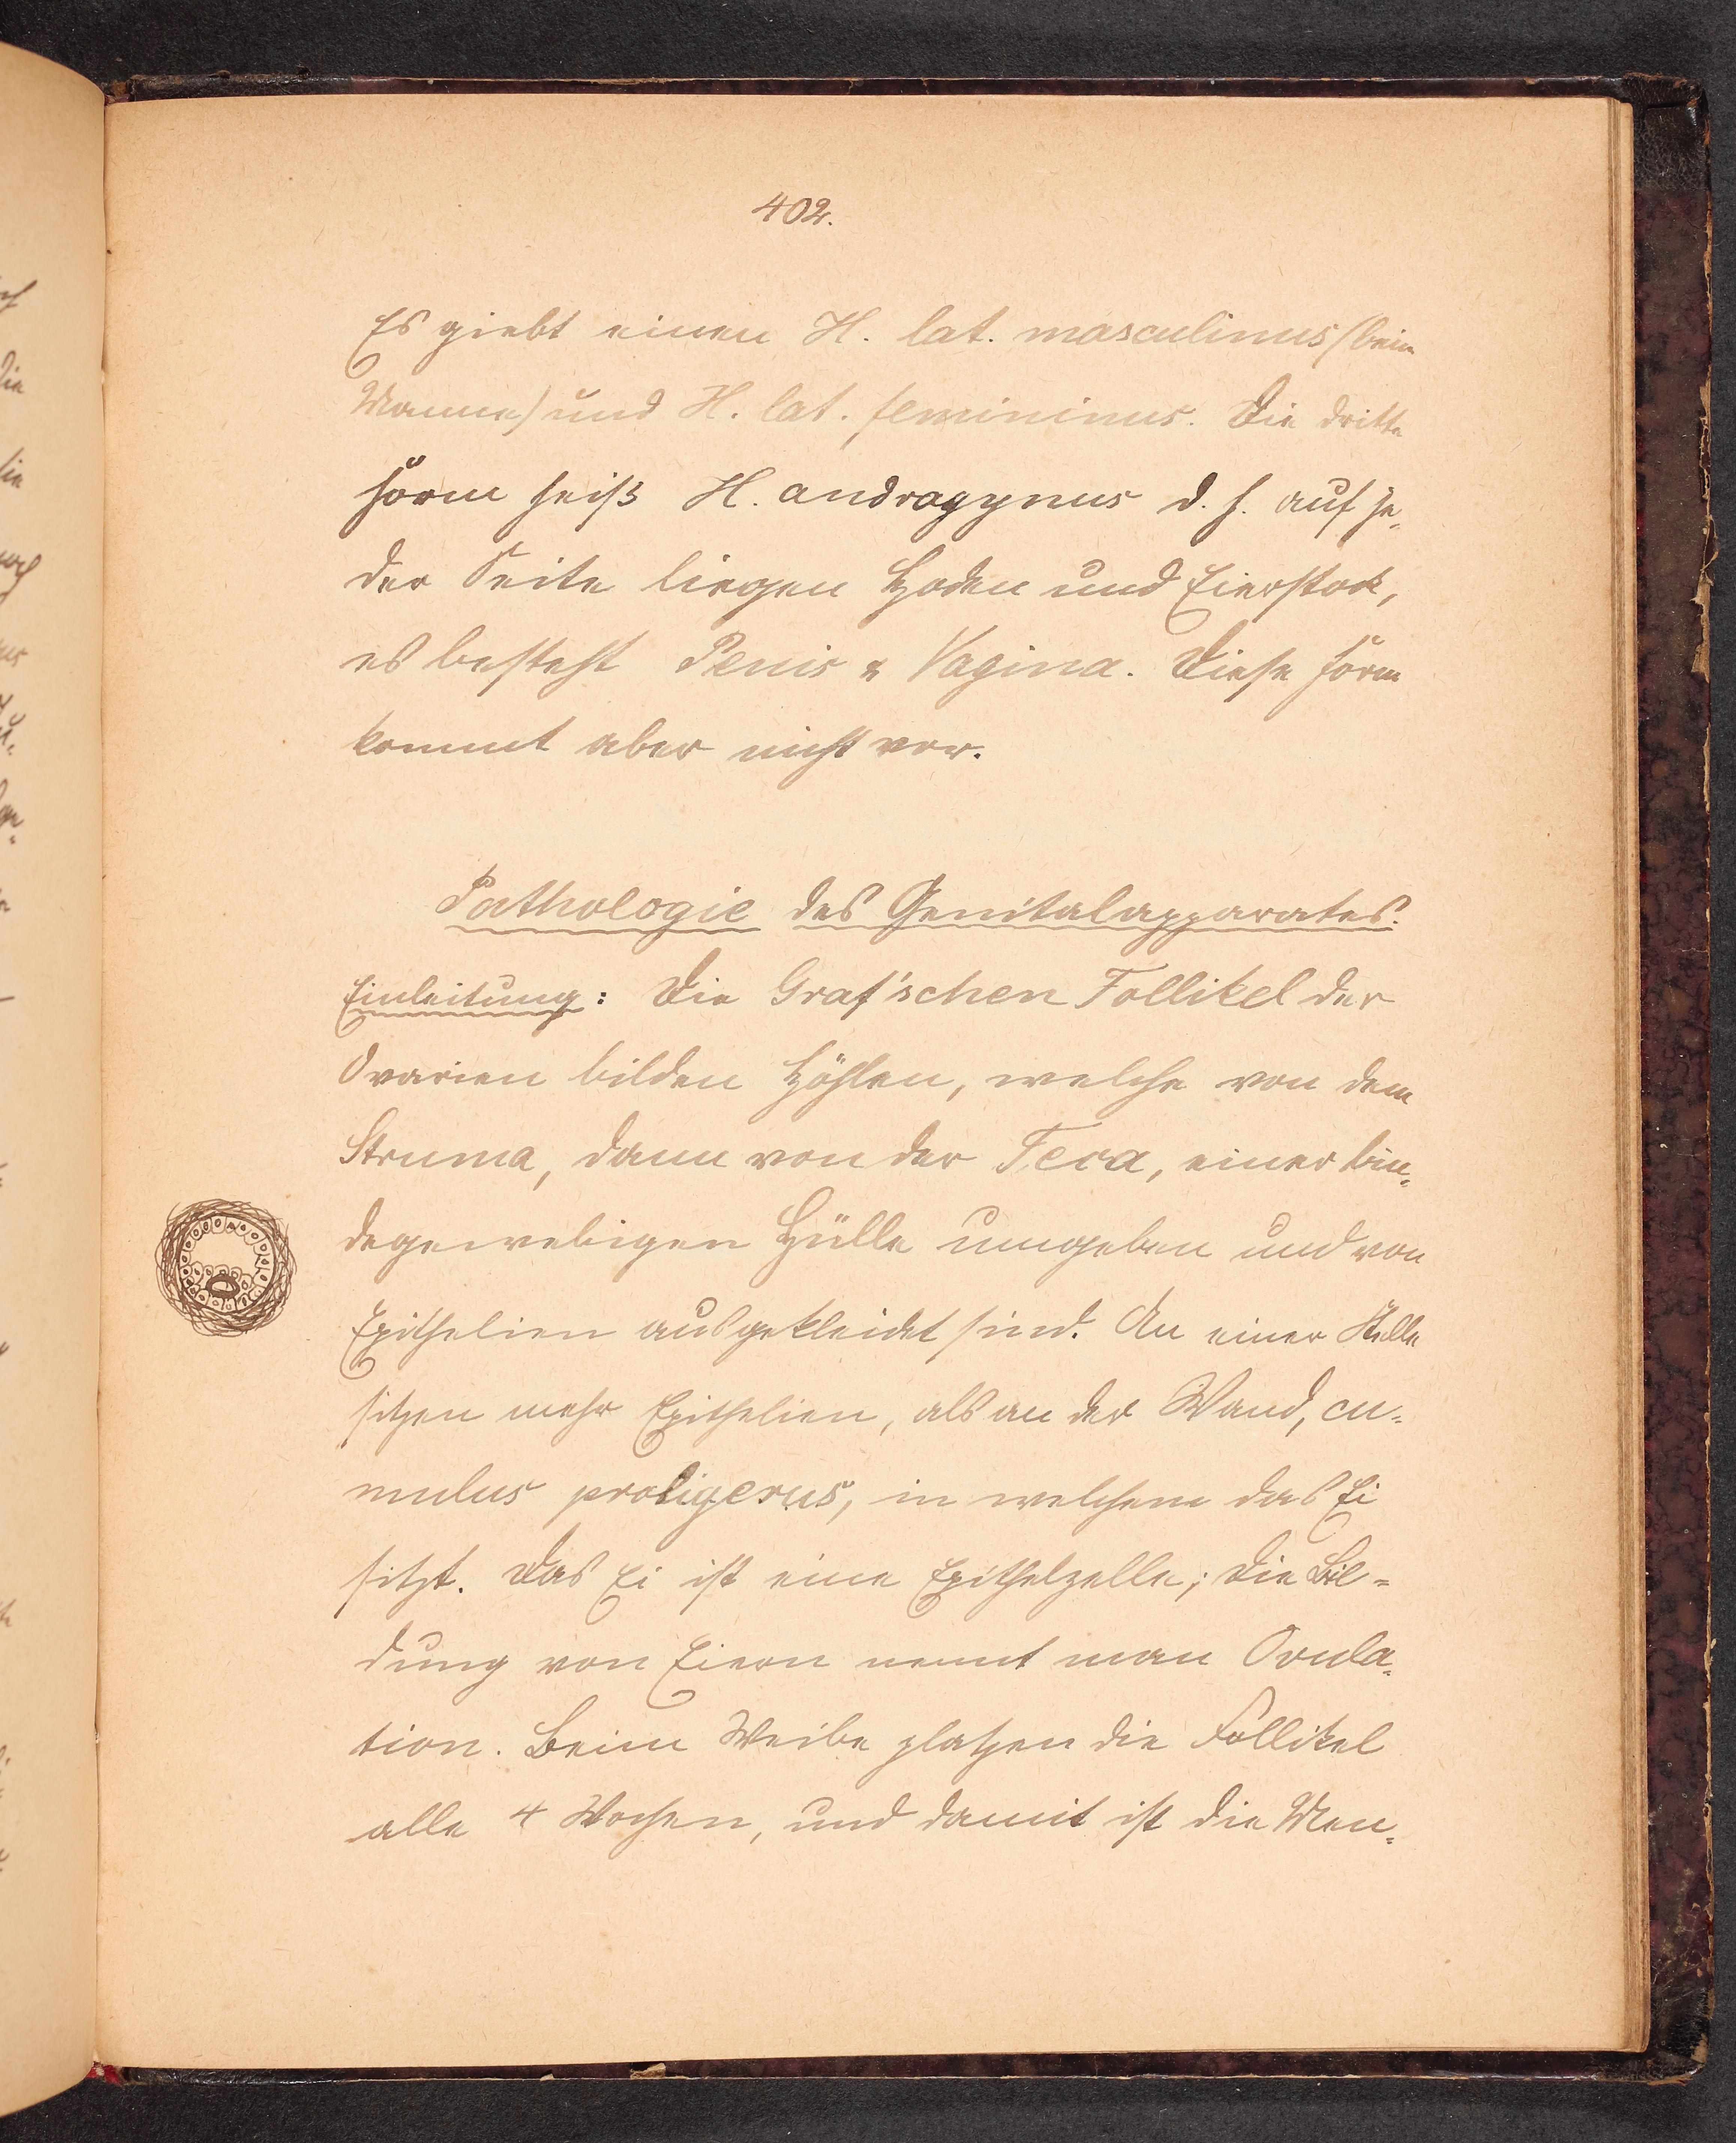 402.
Es giebt einen H. lat. masculinus (beim
Manne) und H. lat. femininus. Die dritte
Form heiß H. andragynus d. h. auf je-
der Seite liegen Hoden und Eierstock,
es besteht Penis & Vagina. Diese Form
kommt aber nicht vor.
Pathologie des Genitalapparates.
Einleitung: Die Graf'schen Follikel der
Ovarien bilden Höhlen, welche von dem
Struma, dann von der Teca, einer bin-
degewebigen Hülle umgeben und von
Epithelien ausgekleidet sind. An einer Stelle
sitzen mehr Epithelien, als an der Wand, cu-
mulus proligerus, in welchem das Ei
sitzt. Das Ei ist eine Epithelzelle; die Bil-
dung von Eiern nennt man Ovula-
tion. Beim Weibe platzen die Follikel
alle 4 Wochen, und damit ist die Men-